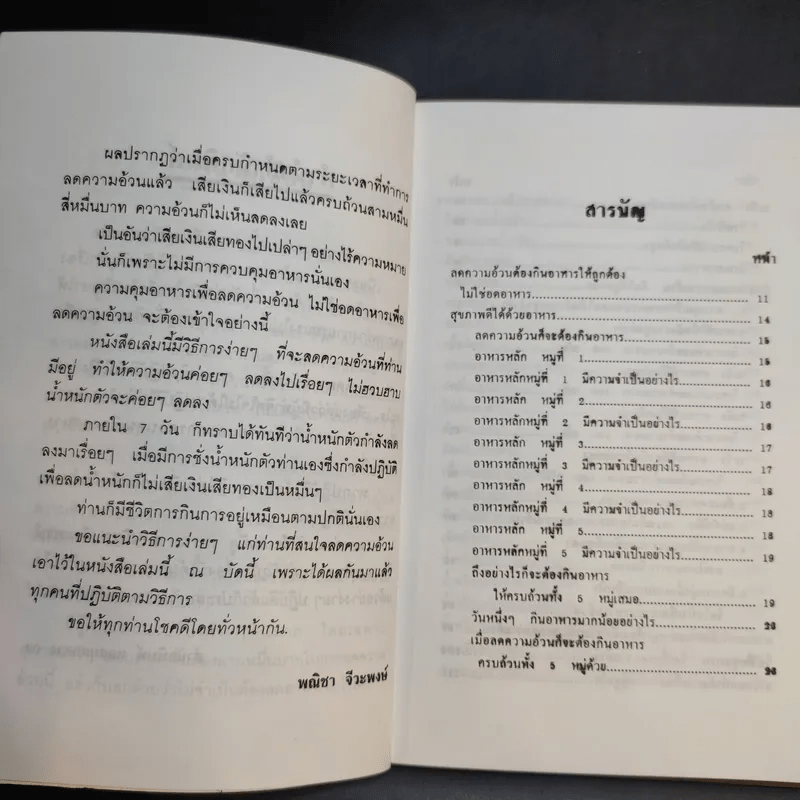 ผลปรากฏว่าเมื่อครบกำหนดตามระยะเวลาที่ทำการ
ลดความอ้วนแล้ว เสียเงินก็เสียไปแล้วครบถ้วนสามหมื่น
สี่หมื่นบาท ความอ้วนก็ไม่เห็นลดลงเลย
เป็นอันว่าเสียเงินเสียทองไปเปล่าๆ อย่างไร้ความหมาย
นั่นก็เพราะไม่มีการควบคุมอาหารนั่นเอง
ความคุมอาหารเพื่อลดความอ้วน ไม่ใช่อดอาหารเพื่อ
ลดความอ้วน จะต้องเข้าใจอย่างนี้
หนังสือเล่มนี้มีวิธีการง่ายๆ ที่จะลดความอ้วนที่ท่าน
มีอยู่ ทำให้ความอ้วนค่อยๆ ลดลงไปเรื่อยๆ ไม่ฮวบฮาบ
น้ำหนักตัวจะค่อยๆ ลดลง
ภายใน 7 วัน ก็ทราบได้ทันทีว่าน้ำหนักตัวกำลังลด
ลงมาเรื่อยๆ เมื่อมีการชั่งน้ำหนักตัวท่านเองซึ่งกำลังปฏิบัติ
เพื่อลดน้ำหนักก็ไม่เสียเงินเสียทองเป็นหมื่นๆ
ท่านก็มีชีวิตการกินการอยู่เหมือนตามปกตินั่นเอง
ขอแนะนำวิธีการง่ายๆ แก่ท่านที่สนใจลดความอ้วน
เอาไว้ในหนังสือเล่มนี้ ณ บัดนี้ เพราะได้ผลกันมาแล้ว
ทุกคนที่ปฏิบัติตามวิธีการ
ขอให้ทุกท่านโชคดีโดยทั่วหน้ากัน.
พณิชา จีวะพงษ์
สารบัญ
หน้า
ลดความอ้วนต้องกินอาหารให้ถูกต้อง
ไม่ใช่อดอาหาร.......................... 11
สุขภาพดีได้ด้วยอาหาร.......................... 14
ลดความอ้วนก็จะต้องกินอาหาร.......................... 15
อาหารหลัก หมู่ที่ 1.......................... 15
อาหารหลักหมู่ที่ 1 มีความจำเป็นอย่างไร.......................... 16
อาหารหลัก หมู่ที่ 2.......................... 16
อาหารหลักหมู่ที่ 2 มีความจำเป็นอย่างไร.......................... 16
อาหารหลัก หมู่ที่ 3.......................... 17
อาหารหลักหมู่ที่ 3 มีความจำเป็นอย่างไร.......................... 17
อาหารหลัก หมู่ที่ 4.......................... 18
อาหารหลักหมู่ที่ 4 มีความจำเป็นอย่างไร.......................... 18
อาหารหลัก หมู่ที่ 5.......................... 18
อาหารหลักหมู่ที่ 5 มีความจำเป็นอย่างไร.......................... 19
ถึงอย่างไรก็จะต้องกินอาหาร
ให้ครบถ้วนทั้ง 5 หมู่เสมอ.......................... 19
วันหนึ่งๆ กินอาหารมากน้อยอย่างไร..........................
เมื่อลดความอ้วนก็จะต้องกินอาหาร
ครบถ้วนทั้ง 5 หมู่ด้วย..........................